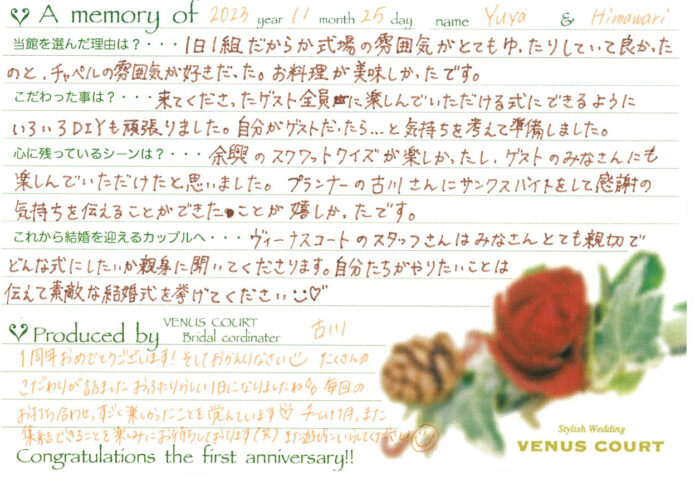 A memory of 2023 year 11 month 25 day name Yuya & Himawari
当館を選んだ理由は？・・・1日1組だからか式場の雰囲気がとてもゆったりしていて良かった
のと、チャペルの雰囲気が好きだった。お料理が美味しかったです。
こだわった事は？・・・来てくださったゲスト全員に楽しんでいただける式にできるように
いろいろDIYも頑張りました。自分がゲストだったら...と気持ちを考えて準備しました。
心に残っているシーンは？・・・余興のスクワットクイズが楽しかったし、ゲストのみなさんにも
楽しんでいただけたと思いました。プランナーの古川さんにサンクスバイトをして感謝の
気持ちを伝えることができたことが嬉しかったです。
これから結婚を迎えるカップルへ・・・ヴィーナスコートのスタッフさんはみなさんとても親切で
どんな式にしたいか親身に聞いてくださります。自分たちがやりたいことは
伝えて素敵な結婚式を挙げてください
Produced by VENUS COURT Bridal cordinater 古川
1周年おめでとうございます！そしておかえりなさい たくさんの
こだわりが詰まったおふたりらしい1日になりましたね 毎回の
お打ち合わせ、すごく楽しかったことを覚えています また
集結できることを楽しみにお待ちしております(笑) また遊びにいらしてください
Congratulations the first anniversary!!
Stylish Wedding
VENUS COURT